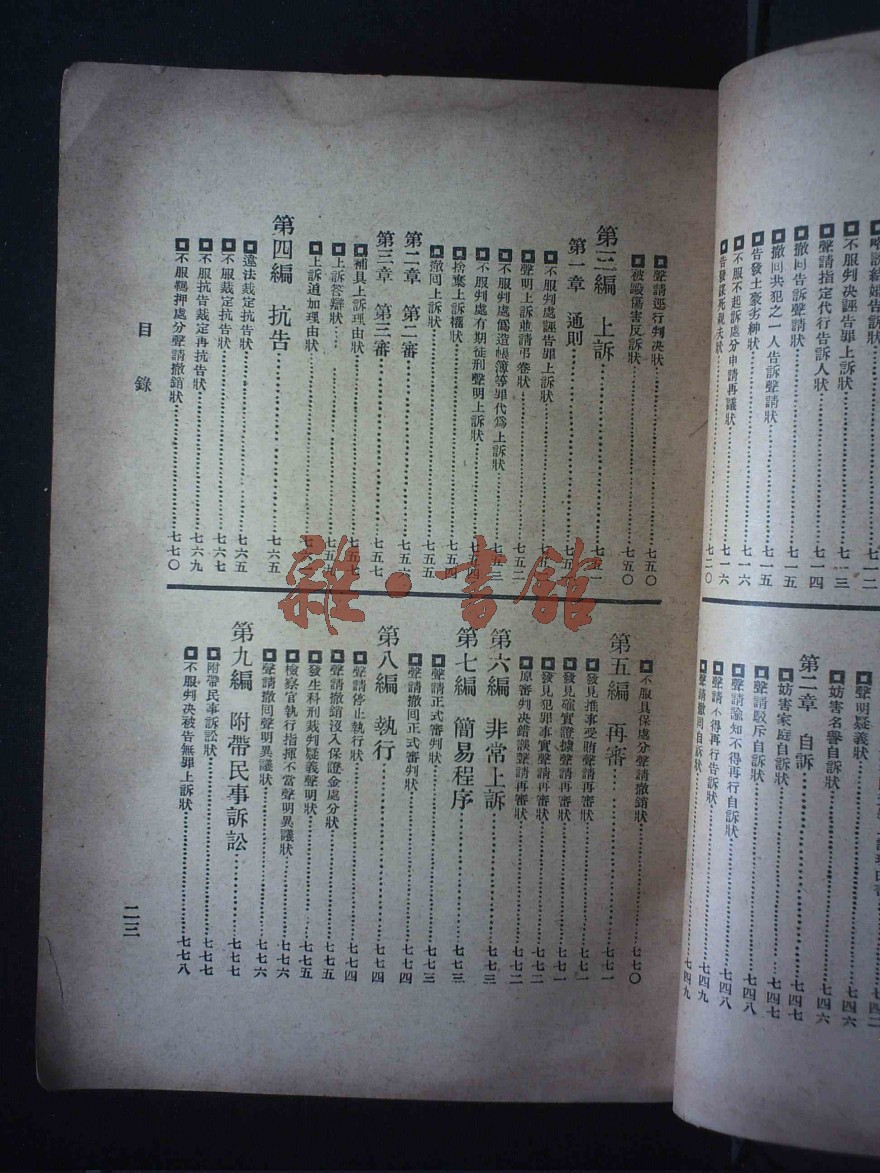 不服判决誣告罪上訴狀…七一三
聲請指定代行告訴人狀…七一四
撤回告訴聲請狀…七一五
撤回共犯之一人告訴聲請狀…七一五
告發土豪劣紳狀…七一六
不服不起訴處分申請再議狀…七一六
告發謀死親夫狀…七二〇
聲明疑義狀
妨害名譽自訴狀…七四六
第二章 自訴…七四六
妨害家庭自訴狀…七四七
聲請駁斥自訴狀…七四七
聲請諭知不得再行自訴狀…七四八
聲請不得再行告訴狀…七四八
聲請撤回自訴狀…七四九
聲請逕行判决狀…七五〇
被毆傷害反訴狀…七五〇
第三編 上訴…七五一
第一章 通則…七五
不服判處誣告罪上訴狀…七五
聲明上訴並請弔卷狀…七五二
不服判處僞造帳簿等罪代爲上訴狀…七五三
不服判處有期徒刑聲明上訴狀…七五
捨棄上訴權狀…七五四
撤回上訴狀…七五五
第二章 第二審…七五六
第三章 第三審…七五七
補具上訴理由狀…七五七
上訴答辯狀…七五九
上訴追加理由狀…七六
第四編 抗告…七六五
違法裁定抗告狀…七六五
不服裁定抗告狀…七六七
不服抗告裁定再抗告狀…七六九
不服羈押處分聲請撤銷狀…七七〇
不服具保處分聲請撤銷狀…七七〇
第五編 再審…七七一
發見推事受賄聲請再審狀…七七一
發見確實證據聲請再審狀…七七一
發見犯罪事實聲請再審狀…七七二
原審判决錯誤聲請再審狀…七七二
第六編 非常上訴…七七三
第七編 簡易程序…七七三
聲請正式審判狀…七七三
聲請撤回正式審判狀…七七四
第八編 執行…七七四
聲請停止執行狀…七七四
聲請撤銷沒入保證金處分狀…七七五
發生科刑裁判疑義聲明狀…七七五
檢察官執行指揮不當聲明異議狀…七七六
聲請撤回聲明異議狀…七七六
第九編 附帶民事訴訟…七七七
附帶民事訴訟狀…七七七
不服判决被告無罪上訴狀…七七八
目錄
二三
雜·書館